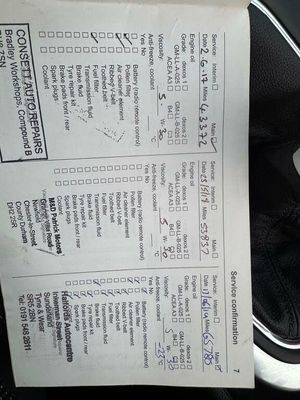 Service confirmation
7
Service Interim Main
Date 2-6-17 Miles 43372
Engine oil
Grade: dexos 1 dexos 2
GM-LL-A-025 GM-LL-B-025
ACEA A3 B4
Viscosity: 5 W- 30
Anti-freeze, coolant °C
Yes No
Battery (radio remote control)
Pollen filter
Air cleaner element
Ribbed V-belt
Toothed belt
Fuel filter
Transmission fluid
Brake fluid
Tyre repair kit
Brake pads front / rear
Spark plugs
Coolant
CONSETT AUTO REPAIRS
Bradley Workshops, Compound B
Service Interim Main
Date 23/5/18 Miles 53837
Engine oil
Grade: dexos 1 dexos 2
GM-LL-A-025 GM-LL-B-025
ACEA A3 B4
Viscosity: 5 W- 30
Anti-freeze, coolant °C
Yes No
Battery (radio remote control)
Pollen filter
Air cleaner element
Ribbed V-belt
Toothed belt
Fuel filter
Transmission fluid
Brake fluid
Tyre repair kit
Brake pads front / rear
Spark plugs
Patrick Motors
Newfield
Chester-le-Street
County Durham
DH2 2SR
Service Interim Main
Miles 65780
Engine oil
Grade: dexos 1 dexos 2
GM-LL-A-025 GM-LL-B-025
ACEA A3 B4
Viscosity: 5 W- 30
Anti-freeze, coolant -25°C
Yes No
Battery (radio remote control)
Pollen filter
Air cleaner element
Ribbed V-belt
Toothed belt
Fuel filter
Transmission fluid
Brake fluid
Tyre repair kit
Halfords Autocentre
Sunderland
Tyne & Wear
Tel: 0191 548 2811